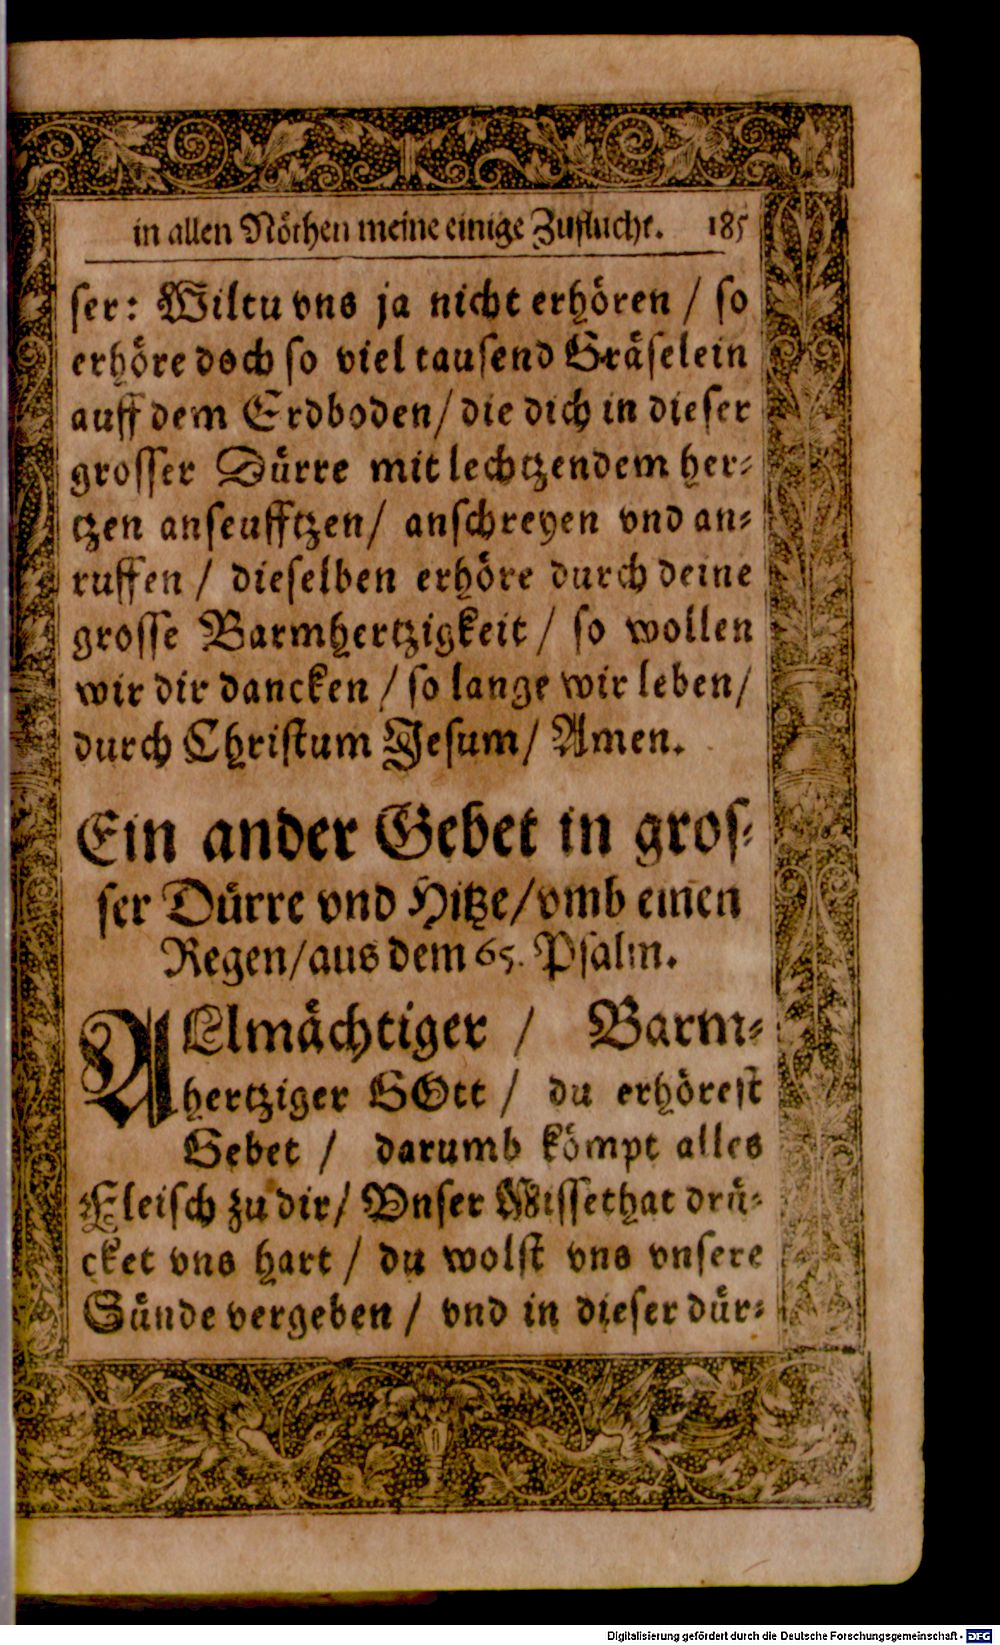 in allen Nöthen meine einige Zuflucht. 185
ser: Wiltu vns ja nicht erhören / so
erhöre doch so viel tausend Gräselein
auff dem Erdboden/ die dich in dieser
grosser Dürre mit lechtzendem her-
tzen anseufftzen/ anschreyen vnd an-
ruffen / dieselben erhöre durch deine
grosse Barmhertzigkeit / so wollen
wir dir dancken / so lange wir leben/
durch Christum Jesum/ Amen.
Ein ander Gebet in gros-
ser Dürre vnd Hitze/vmb einen
Regen/aus dem 65. Psalm.
ALlmächtiger / Barm-
hertziger GOtt / du erhörest
Gebet / darumb kömpt alles
Fleisch zu dir/ Vnser Missethat drü-
cket vns hart / du wolst vns vnsere
Sünde vergeben / vnd in dieser dür-
Digitalisierung gefördert durch die Deutsche Forschungsgemeinschaft - DFG